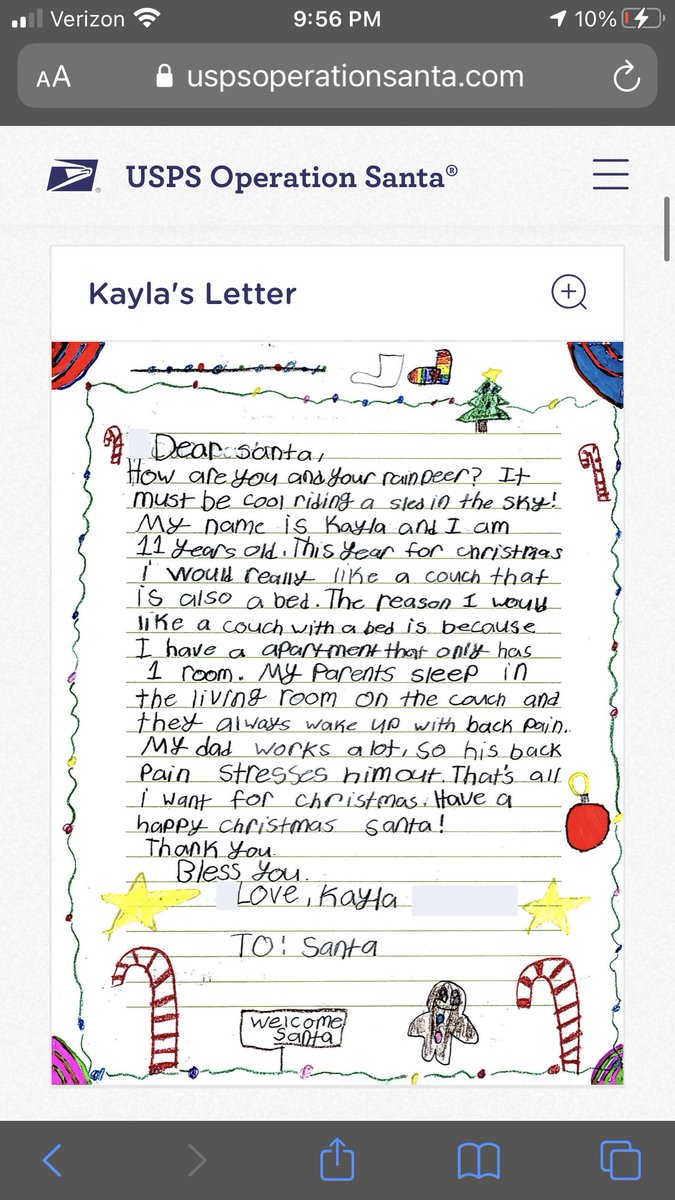 Verizon 9:56 PM 10%
AA uspsoperationsanta.com
USPS Operation Santa®
Kayla's Letter
Dear Santa,
How are you and your rainDeer? It
must be cool riding a sled in the sky!
My name is Kayla and I am
11 years old. This year for christmas
i would really like a couch that
is also a bed. The reason I would
like a couch with a bed is because
I have a apartment that only has
1 room. My Parents sleep in
the living room on the couch and
they always wake up with back pain.
My dad works a lot, so his back
Pain stresses him out. That's all
i want for christmas. Have a
happy christmas santa!
Thank you.
Bless you.
Love, Kayla
TO: Santa
Welcome
Santa